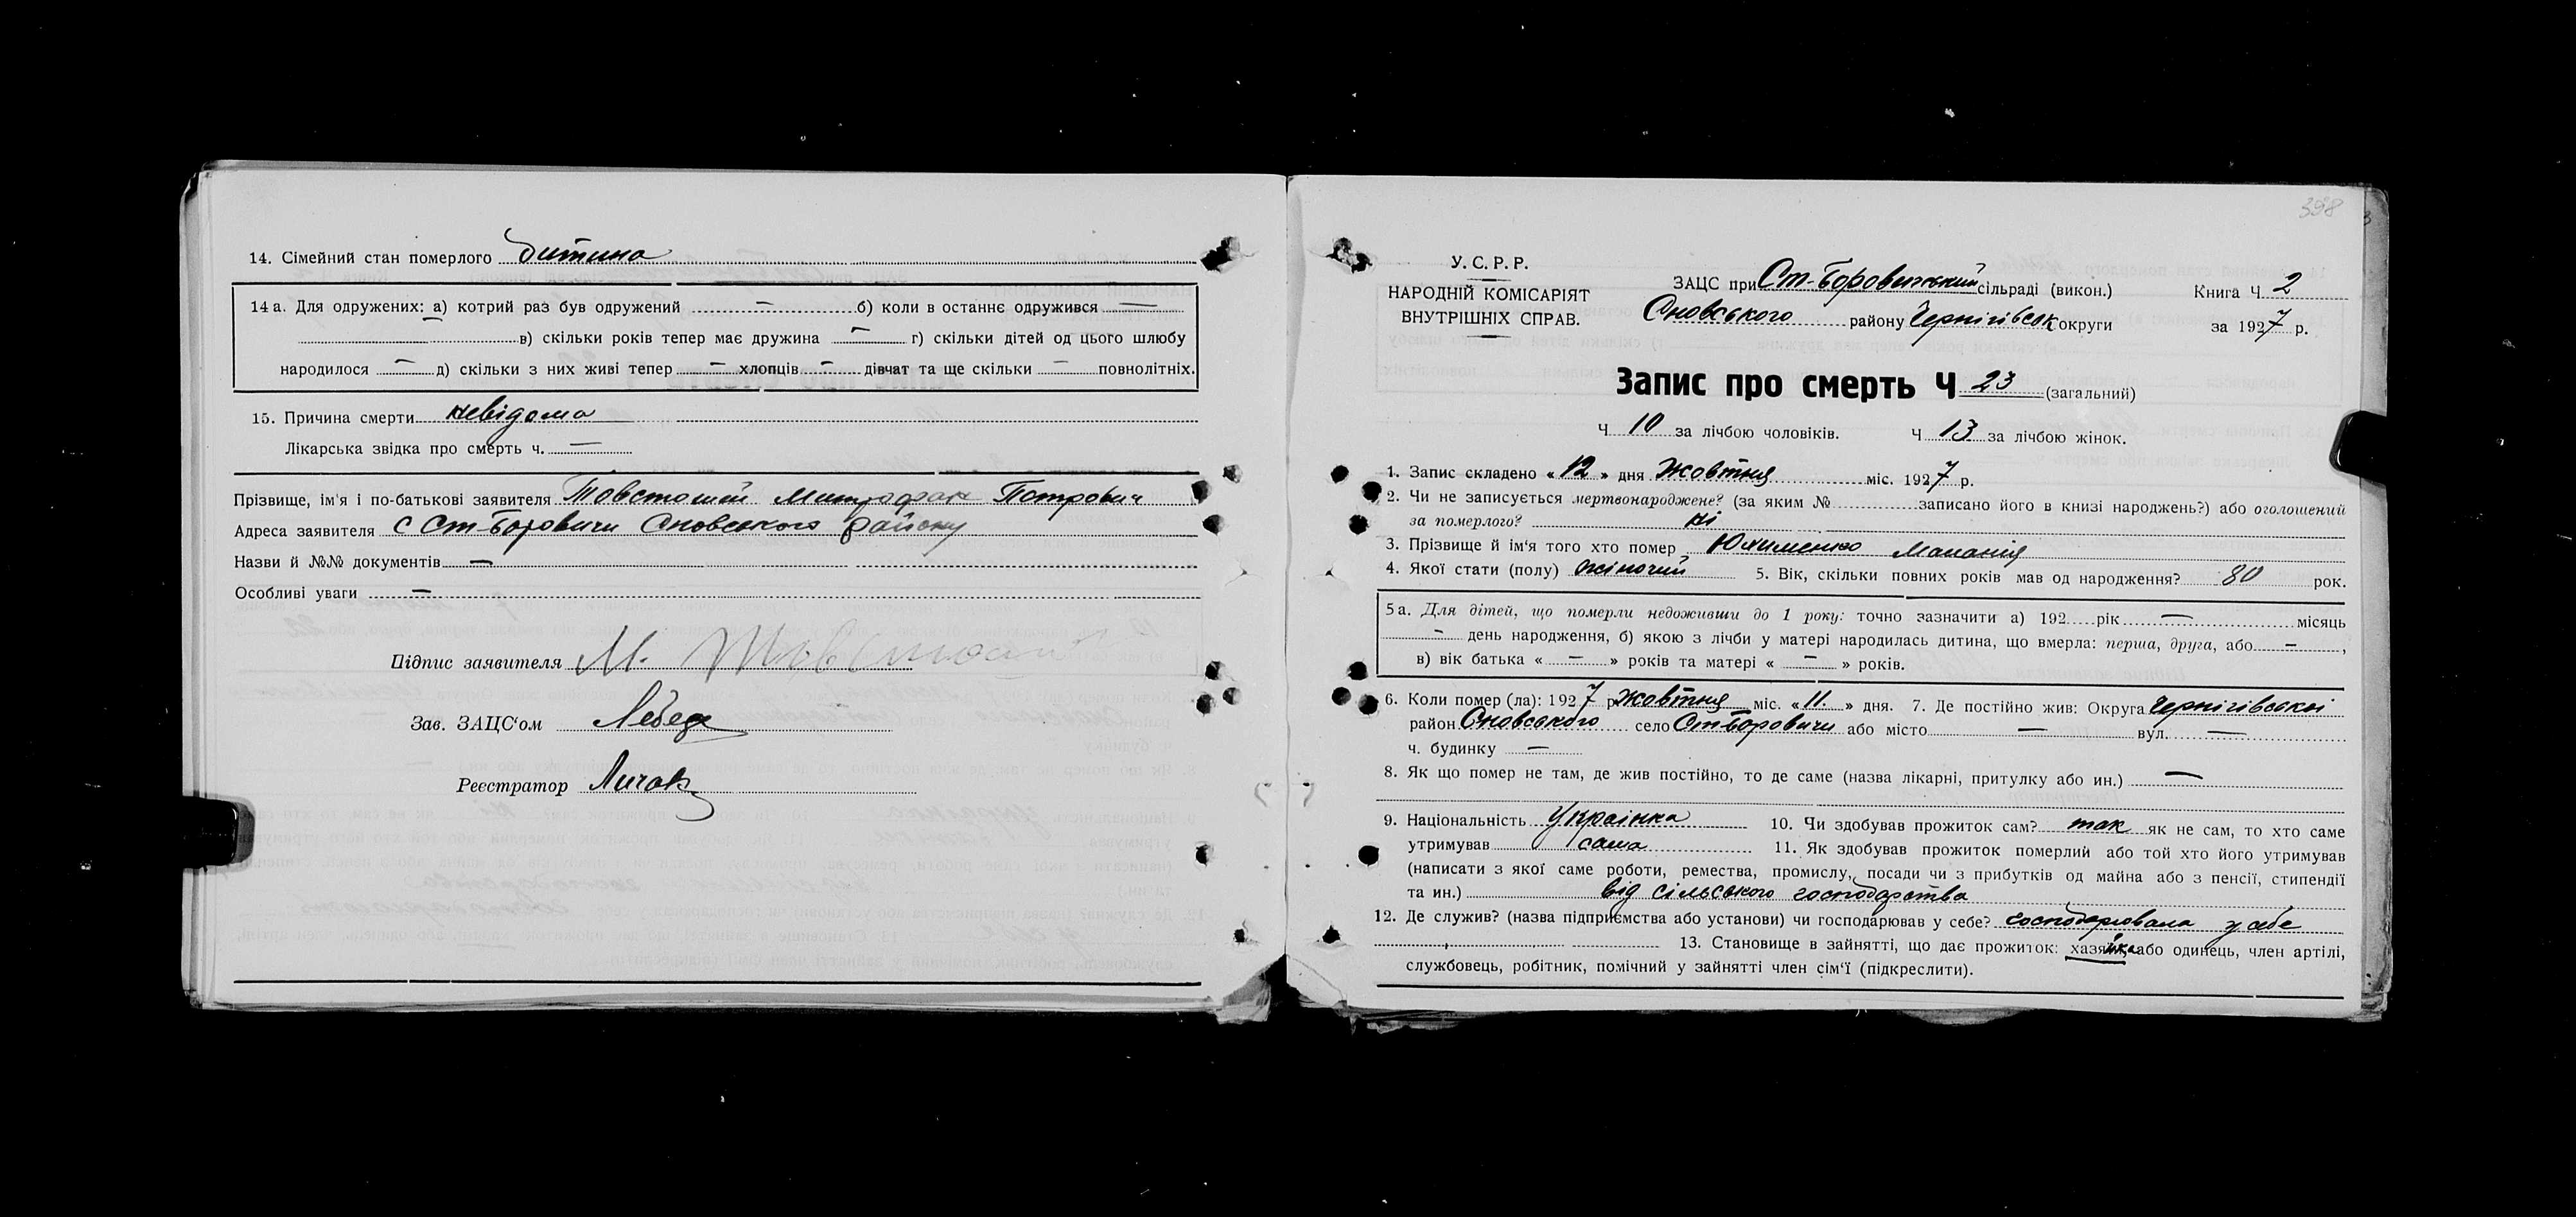 14. Сімейний стан померлого дитина
14 а. Для одружених: а) котрий раз був одружений — б) коли в останнє одружився —
в) скільки років тепер має дружина — г) скільки дітей од цього шлюбу
народилося — д) скільки з них живі тепер — хлопців — дівчат та ще скільки — повнолітніх.
15. Причина смерти невідома
Лікарська звідка про смерть ч. —
Прізвище, ім'я і по-батькові заявителя Товстошей Митрофан Петрович
Адреса заявителя с Ст-Боровичи Сновського району
Назви й №№ документів —
Особливі уваги —
Підпис заявителя М.
Зав. ЗАЦС'ом Лебедь
Реєстратор
398
У. С. Р. Р.
НАРОДНІЙ КОМІСАРІЯТ
ВНУТРІШНІХ СПРАВ.
ЗАЦС при Ст-Боровичський сільраді (викон.)
Сновського району Чернігівськ округи
Книга Ч 2
за 1927 р.
Запис про смерть Ч 23 (загальний)
Ч 10 за лічбою чоловіків. Ч 13 за лічбою жінок.
1. Запис складено « 12 » дня Жовтня міс. 1927 р.
2. Чи не записується мертвонароджене? (за яким № записано його в книзі народжень?) або оголошений
за померлого? ні
3. Прізвище й ім'я того хто помер Юхименко Маланія
4. Якої стати (полу) жіночий 5. Вік, скільки повних років мав од народження? 80 рок.
5 а. Для дітей, що померли недоживши до 1 року: точно зазначити а) 192 рік — місяць
— день народження, б) якою з лічби у матері народилась дитина, що вмерла: перша, друга, або —,
в) вік батька « — » років та матері « — » років.
6. Коли помер (ла): 1927 р Жовтня міс. « 11. » дня. 7. Де постійно жив: Округа Чернігівської
район Сновського село Ст-Боровичи або місто — вул. —
ч. будинку —
8. Як що помер не там, де жив постійно, то де саме (назва лікарні, притулку або ин.) —
9. Національність Українка 10. Чи здобував прожиток сам? так як не сам, то хто саме
утримував сама 11. Як здобував прожиток померлий або той хто його утримував
(написати з якої саме роботи, ремества, промислу, посади чи з прибутків од майна або з пенсії, стипендії
та ин.) від сільського господарства
12. Де служив? (назва підприємства або установи) чи господарював у себе? господарювала у себе
13. Становище в зайнятті, що дає прожиток: хазяйка або одинець, член артілі,
службовець, робітник, помічний у зайнятті член сім'ї (підкреслити).